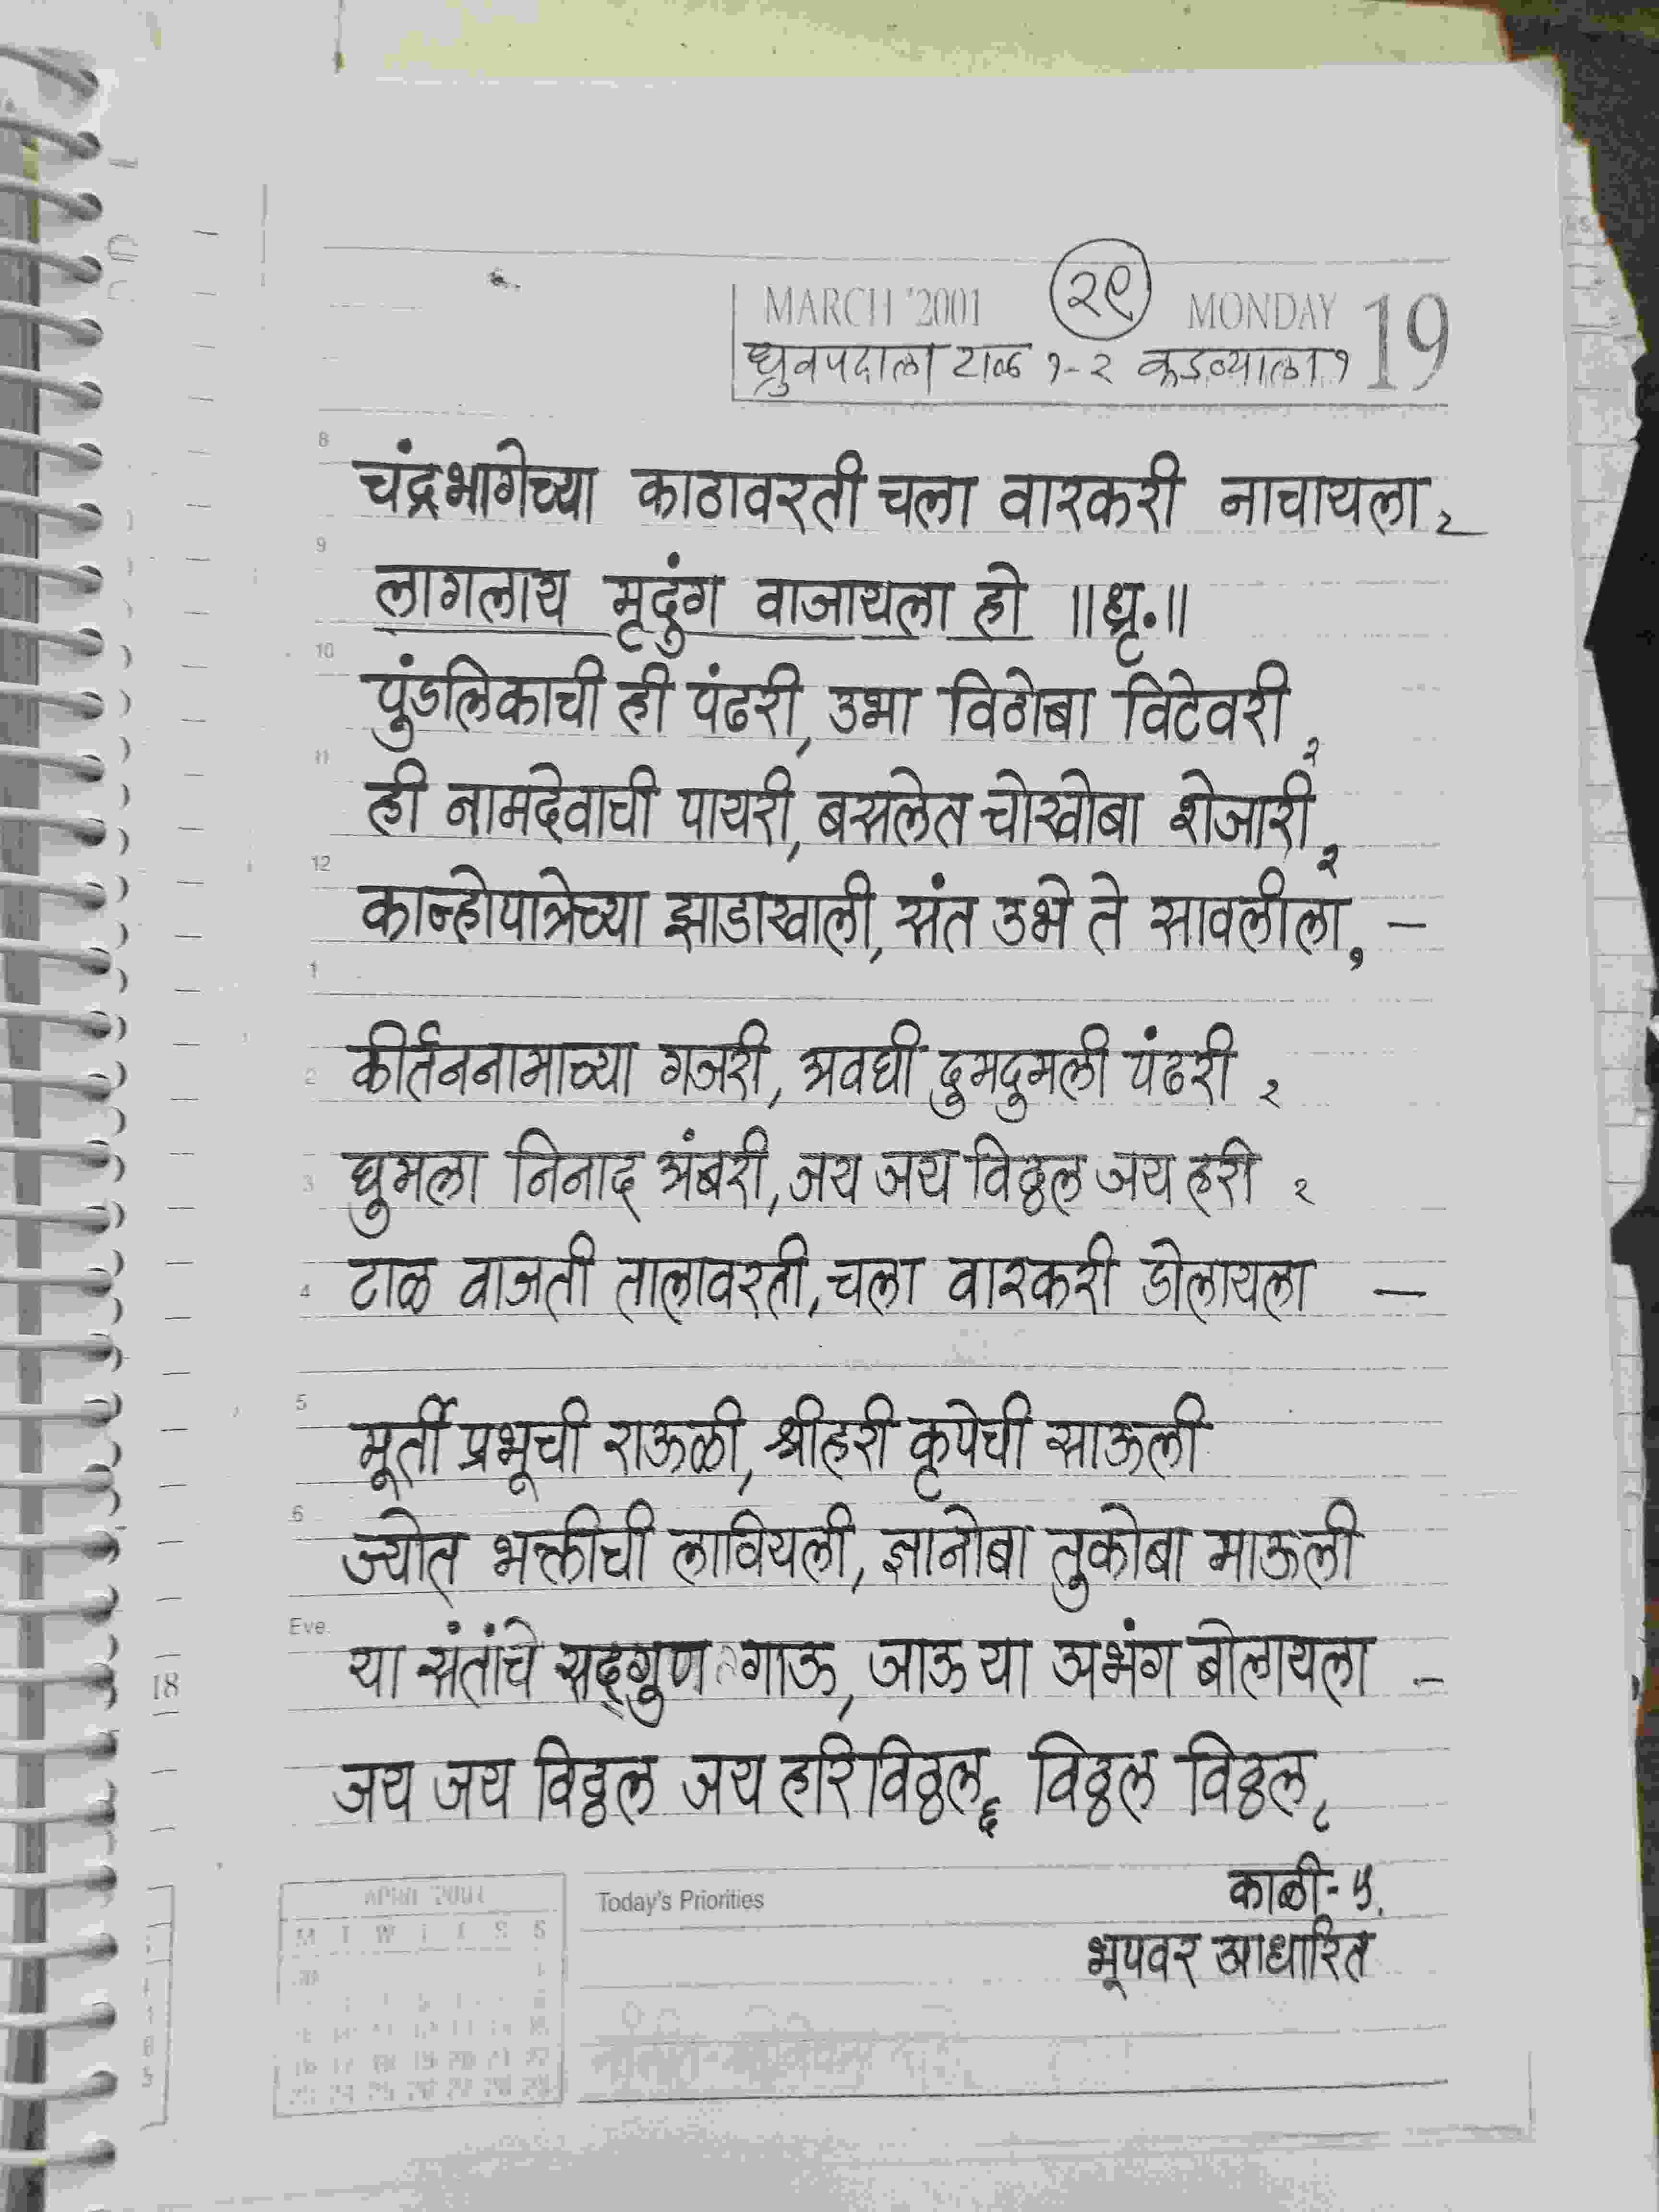 MARCH '2001 २९ MONDAY 19
ध्रुवपदाला टाळ १-२ कडव्याला १
8
चंद्रभागेच्या काठावरती चला वारकरी नाचायला २
9
लागलाय मृदुंग वाजायला हो ॥ध्रृ.॥
10
पुंडलिकाची ही पंढरी, उभा विठोबा विटेवरी २
11
ही नामदेवाची पायरी, बसलेत चोखोबा शेजारी २
12
कान्होपात्रेच्या झाडाखाली, संत उभे ते सावलीला, १ —
1
2 कीर्तननामाच्या गजरी, अवघी दुमदुमली पंढरी २
3 घुमला निनाद अंबरी, जय जय विठ्ठल जय हरी २
4 टाळ वाजती तालावरती, चला वारकरी डोलायला —
5
मूर्ती प्रभूची राऊळी, श्रीहरी कृपेची साऊली
6
ज्योत भक्तीची लावियली, ज्ञानोबा तुकोबा माऊली
Eve.
या संतांचे सद्‌गुण गाऊ, जाऊ या अभंग बोलायला –
18
जय जय विठ्ठल जय हरिविठ्ठल ६ विठ्ठल विठ्ठल ८
काळी-५.
भूपवर आधारित
APRIL 2001
Today's Priorities
M T W T F S S